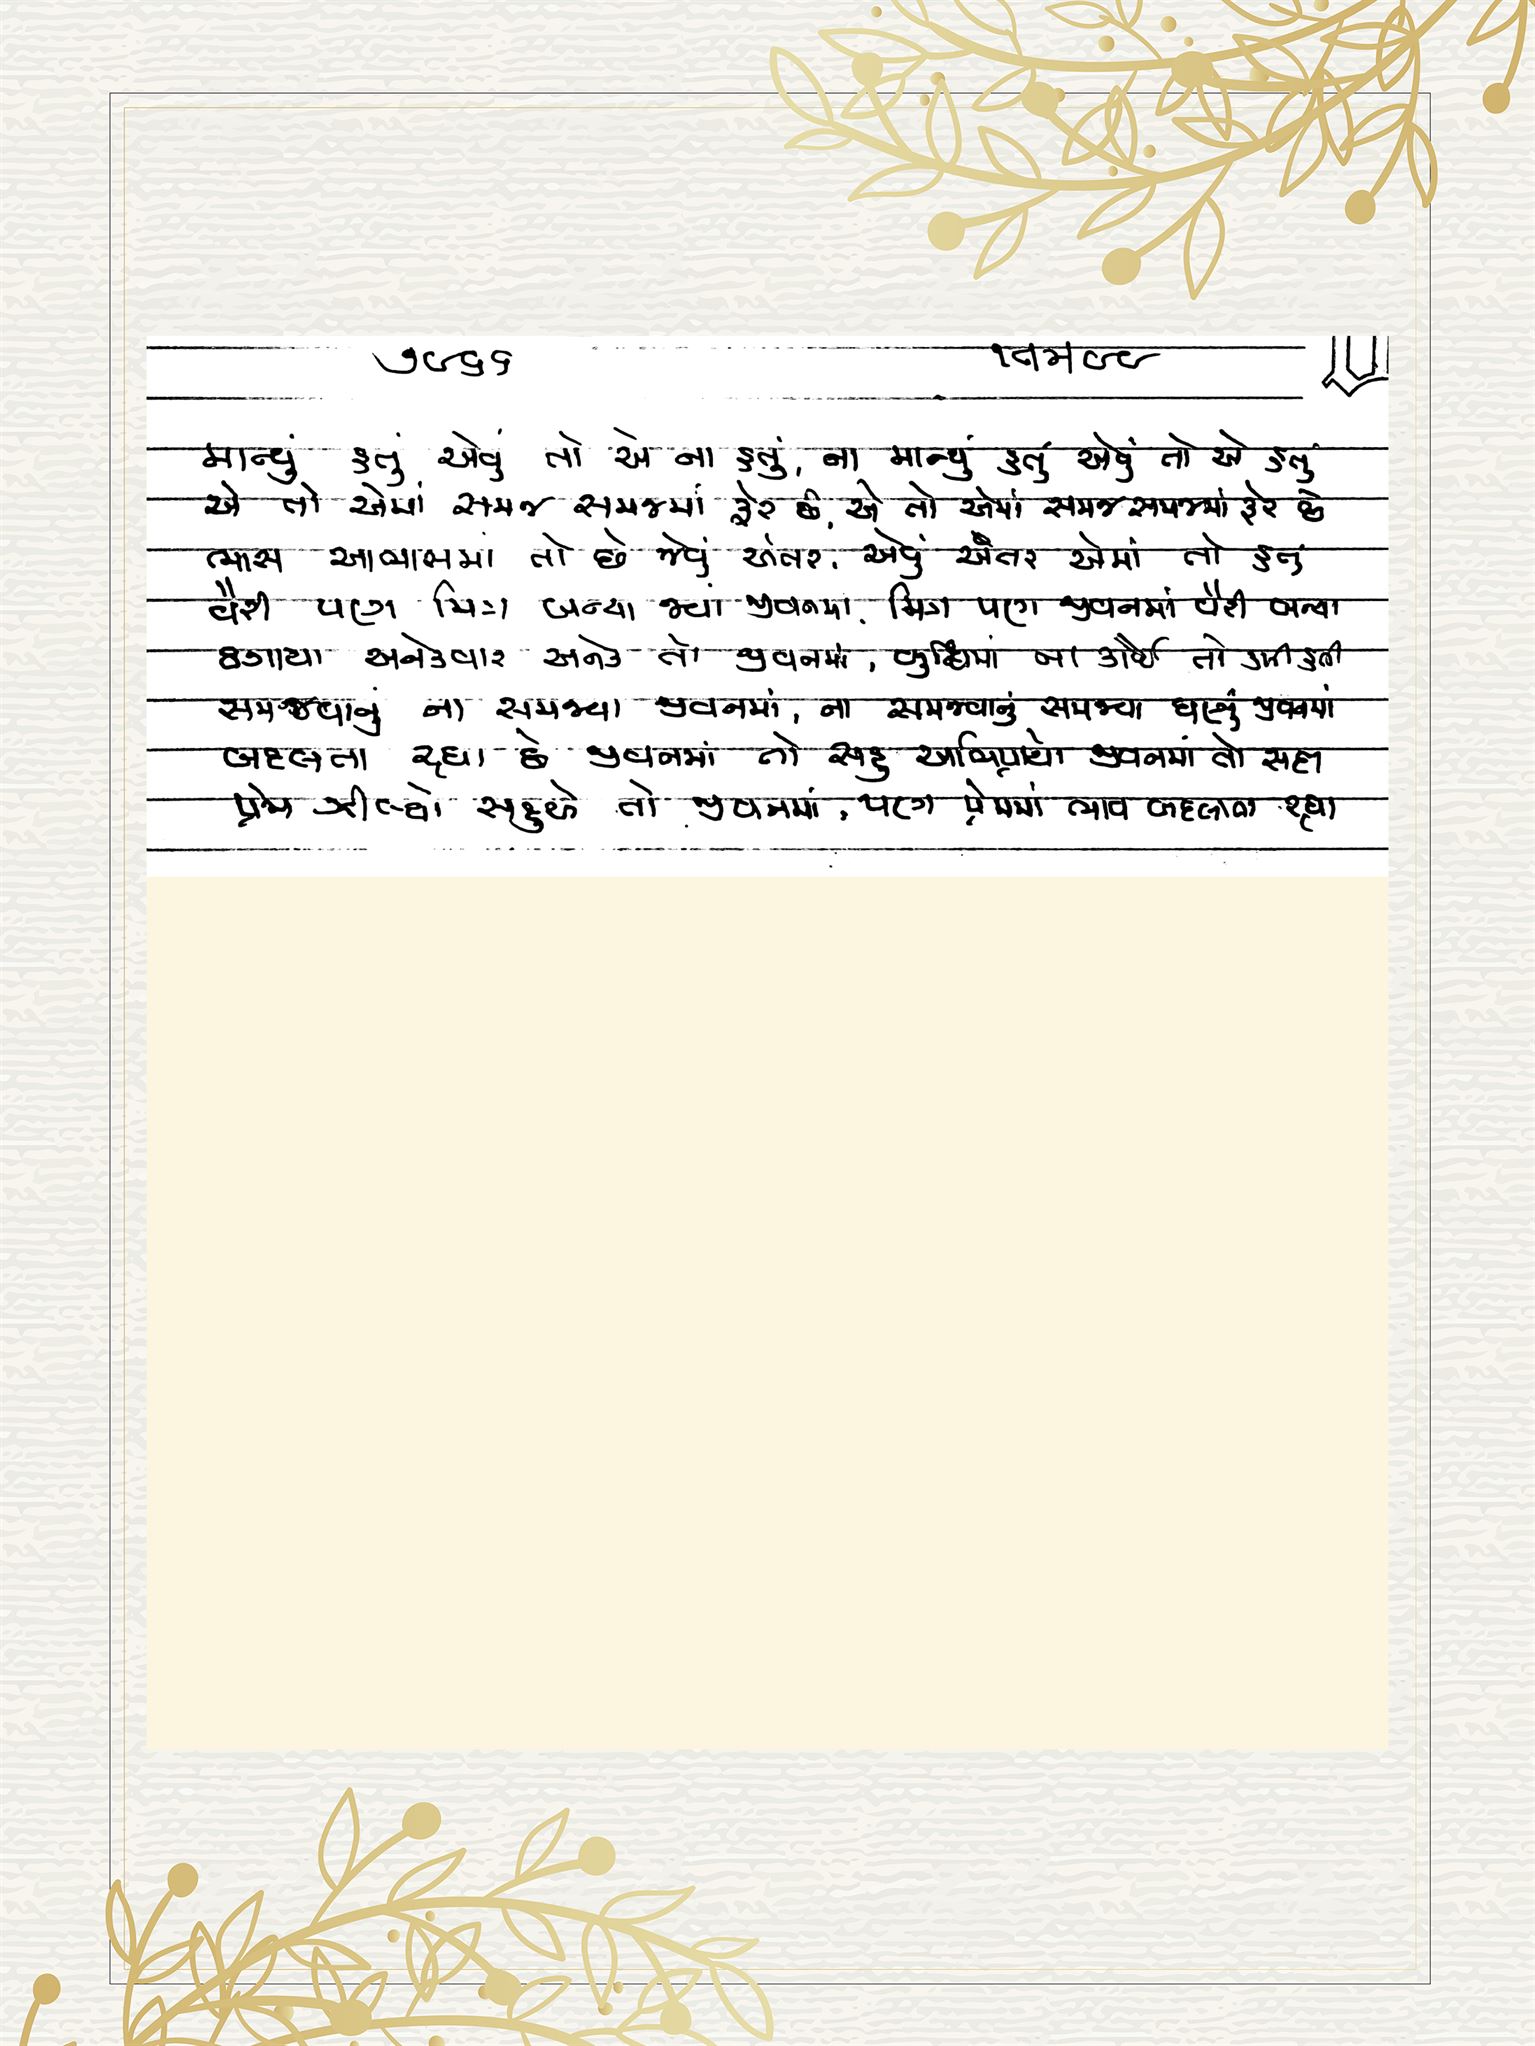 ૭૯૬૬
માન્યું હતું એવું તો એ ના હતું, ના માન્યું હતું એવું તો એ હતું
એ તો એમાં સમજ સમજમાં ફેર છે, એ તો એમાં સમજ સમજમાં ફેર છે
ભાસ આભાસમાં તો છે જેવું અંતર, એવું અંતર એમાં તો હતું
વૈરી પણ મિત્ર બન્યા જ્યાં જીવનમાં, મિત્ર પણ જીવનમાં વૈરી બન્યા
ઠગાયા અનેકવાર અનેક તો જીવનમાં, બુદ્ધિમાં ના કાંઈ તો કમી હતી
સમજવાનું ના સમજ્યા જીવનમાં, ના સમજવાનું સમજ્યા ઘણું જીવનમાં
બદલતા રહ્યા છે જીવનમાં તો સહુ અભિપ્રાયો જીવનમાં તો સદા
પ્રેમ ઝીલ્યો સહુએ તો જીવનમાં, પણ પ્રેમમાં ભાવ બદલાતા રહ્યા